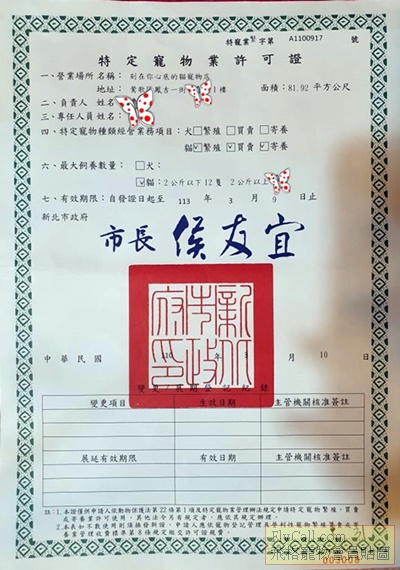 特寵業繁字第 A1100917 號
特定寵物業許可證
一、營業場所名稱： 刻在你心底的貓寵物店
地址： 鶯歌區鳳吉一街 1樓 面積：81.92 平方公尺
二、負責人 姓名
三、專任人員姓名：
四、特定寵物種類經營業務項目：犬□繁殖 □買賣 □寄養
貓☑繁殖 ☑買賣 ☑寄養
六、最大飼養數量：□犬：
☑貓：2公斤以下12隻 2公斤以上
七、有效期限：自發證日起至 113 年 3 月 9 日止
新北市政府
市長 侯友宜
新北市政府印
中華民國 110 年 3 月 10 日
變更/展期登記紀錄
變更項目 生效日期 主管機關核准簽註
展延有效期限 有效日期 主管機關核准簽註
註：1.本證僅供申請人依動物保護法第22條第1項及特定寵物業管理辦法規定申請特定寵物繁殖、買賣
或寄養業許可使用，其他法令有規定者，應依其規定辦理。
FlyCall.com
飛格寵物會員貼圖
003008